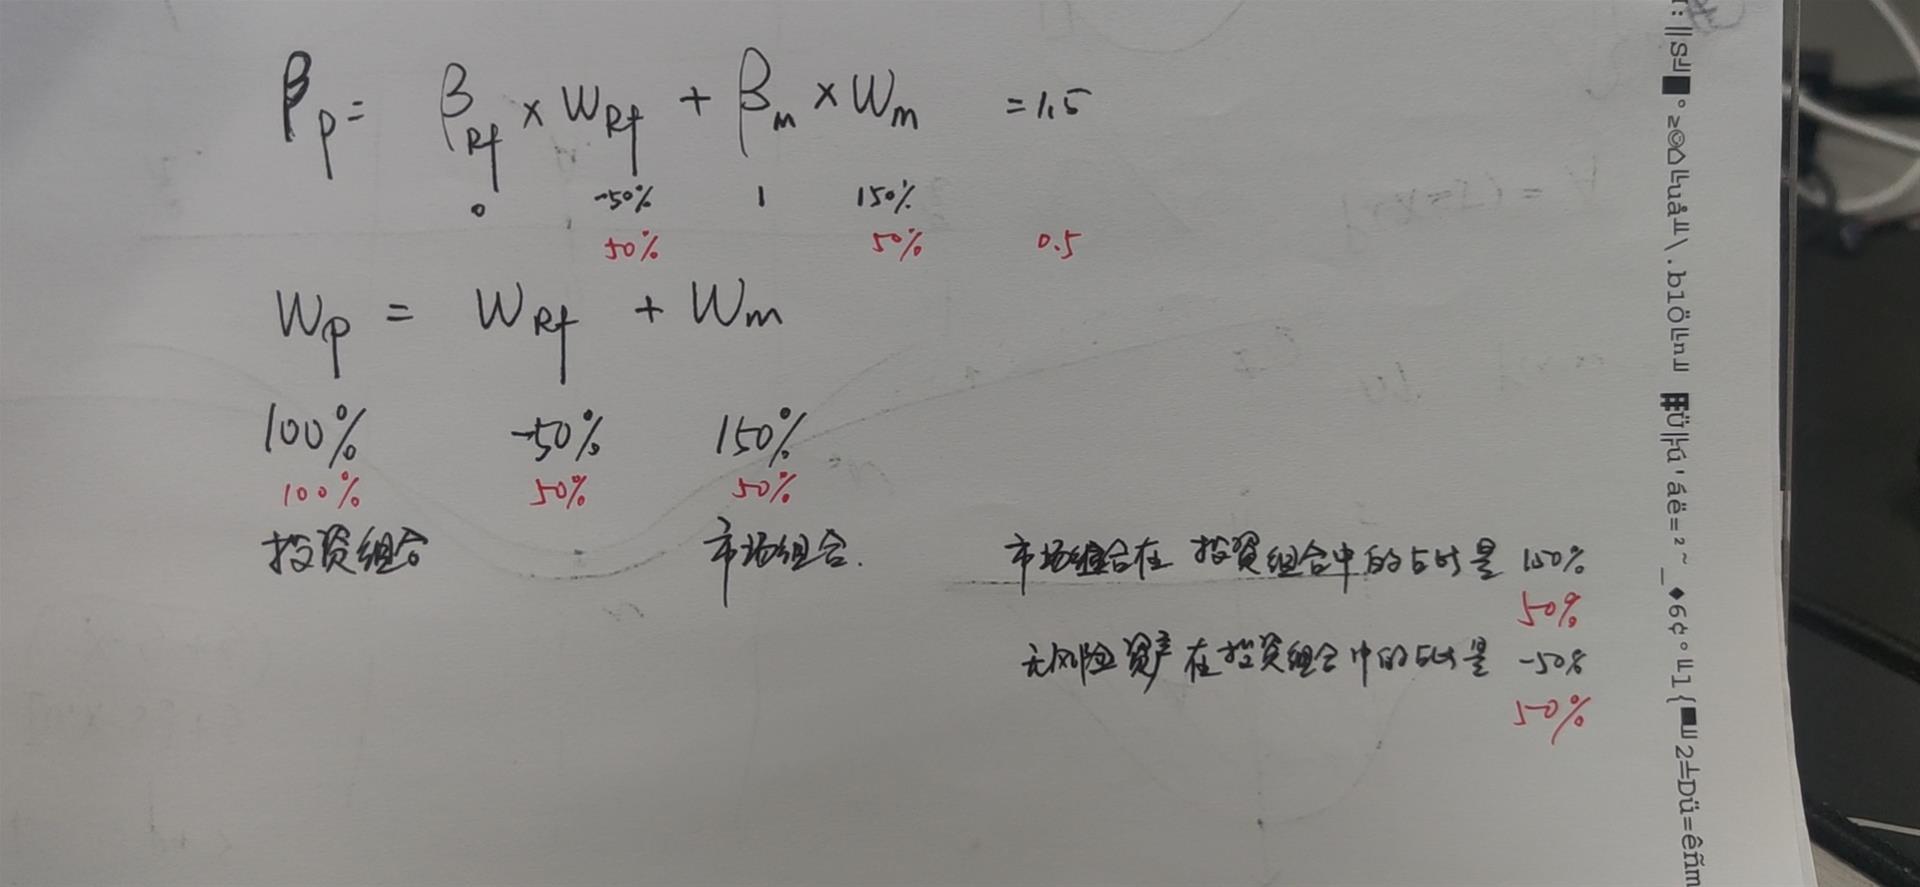 βp = βRf × WRf + βm × Wm = 1.5
0 -50% 1 150%
50% 50% 0.5
Wp = WRf + Wm
100% -50% 150%
100% 50% 50%
投资组合 市场组合.
市场组合在投资组合中的占比是 150%
50%
无风险资产在投资组合中的占比是 -50%
50%